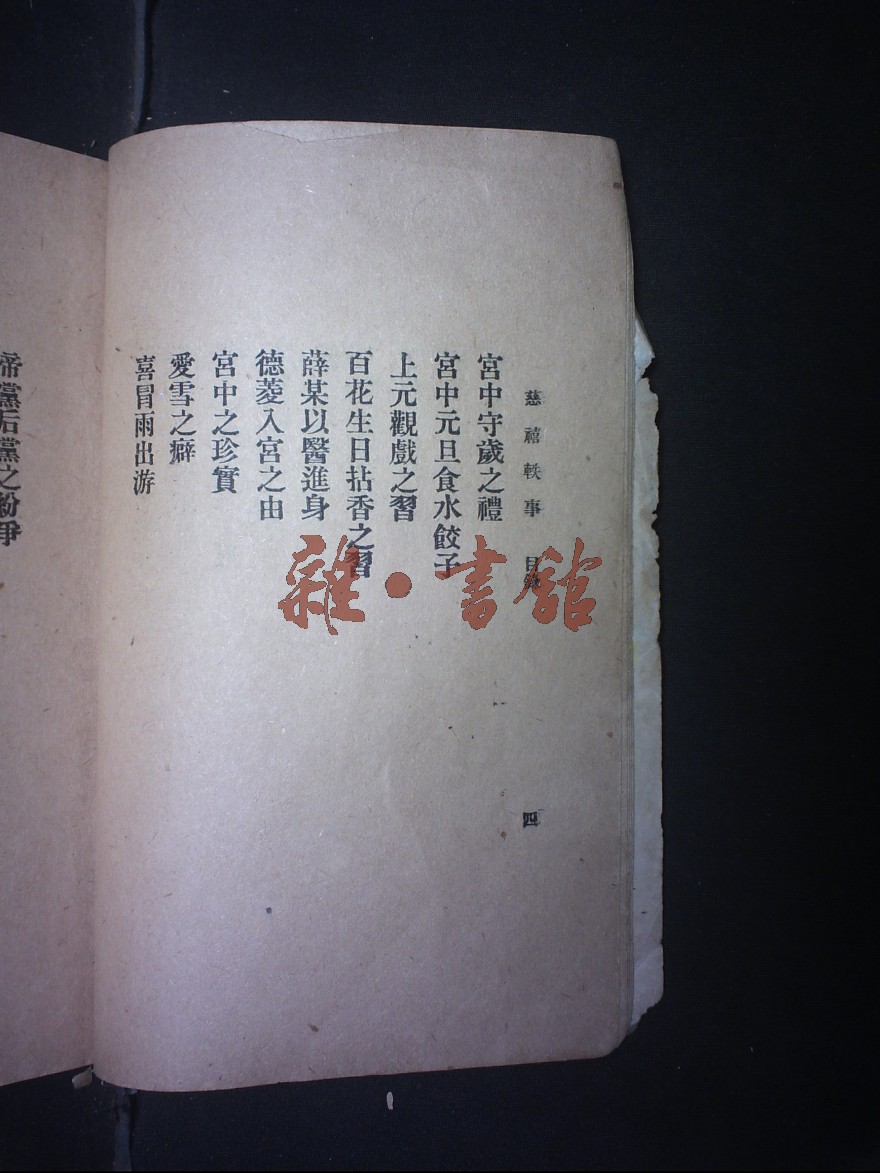 慈禧軼事 目錄
宮中守歲之禮
宮中元旦食水餃子
上元觀戲之習
百花生日拈香之習
薛某以醫進身
德菱入宮之由
宮中之珍寶
愛雪之癖
喜冒雨出游
四
帝黨后黨之紛爭
雜·書館